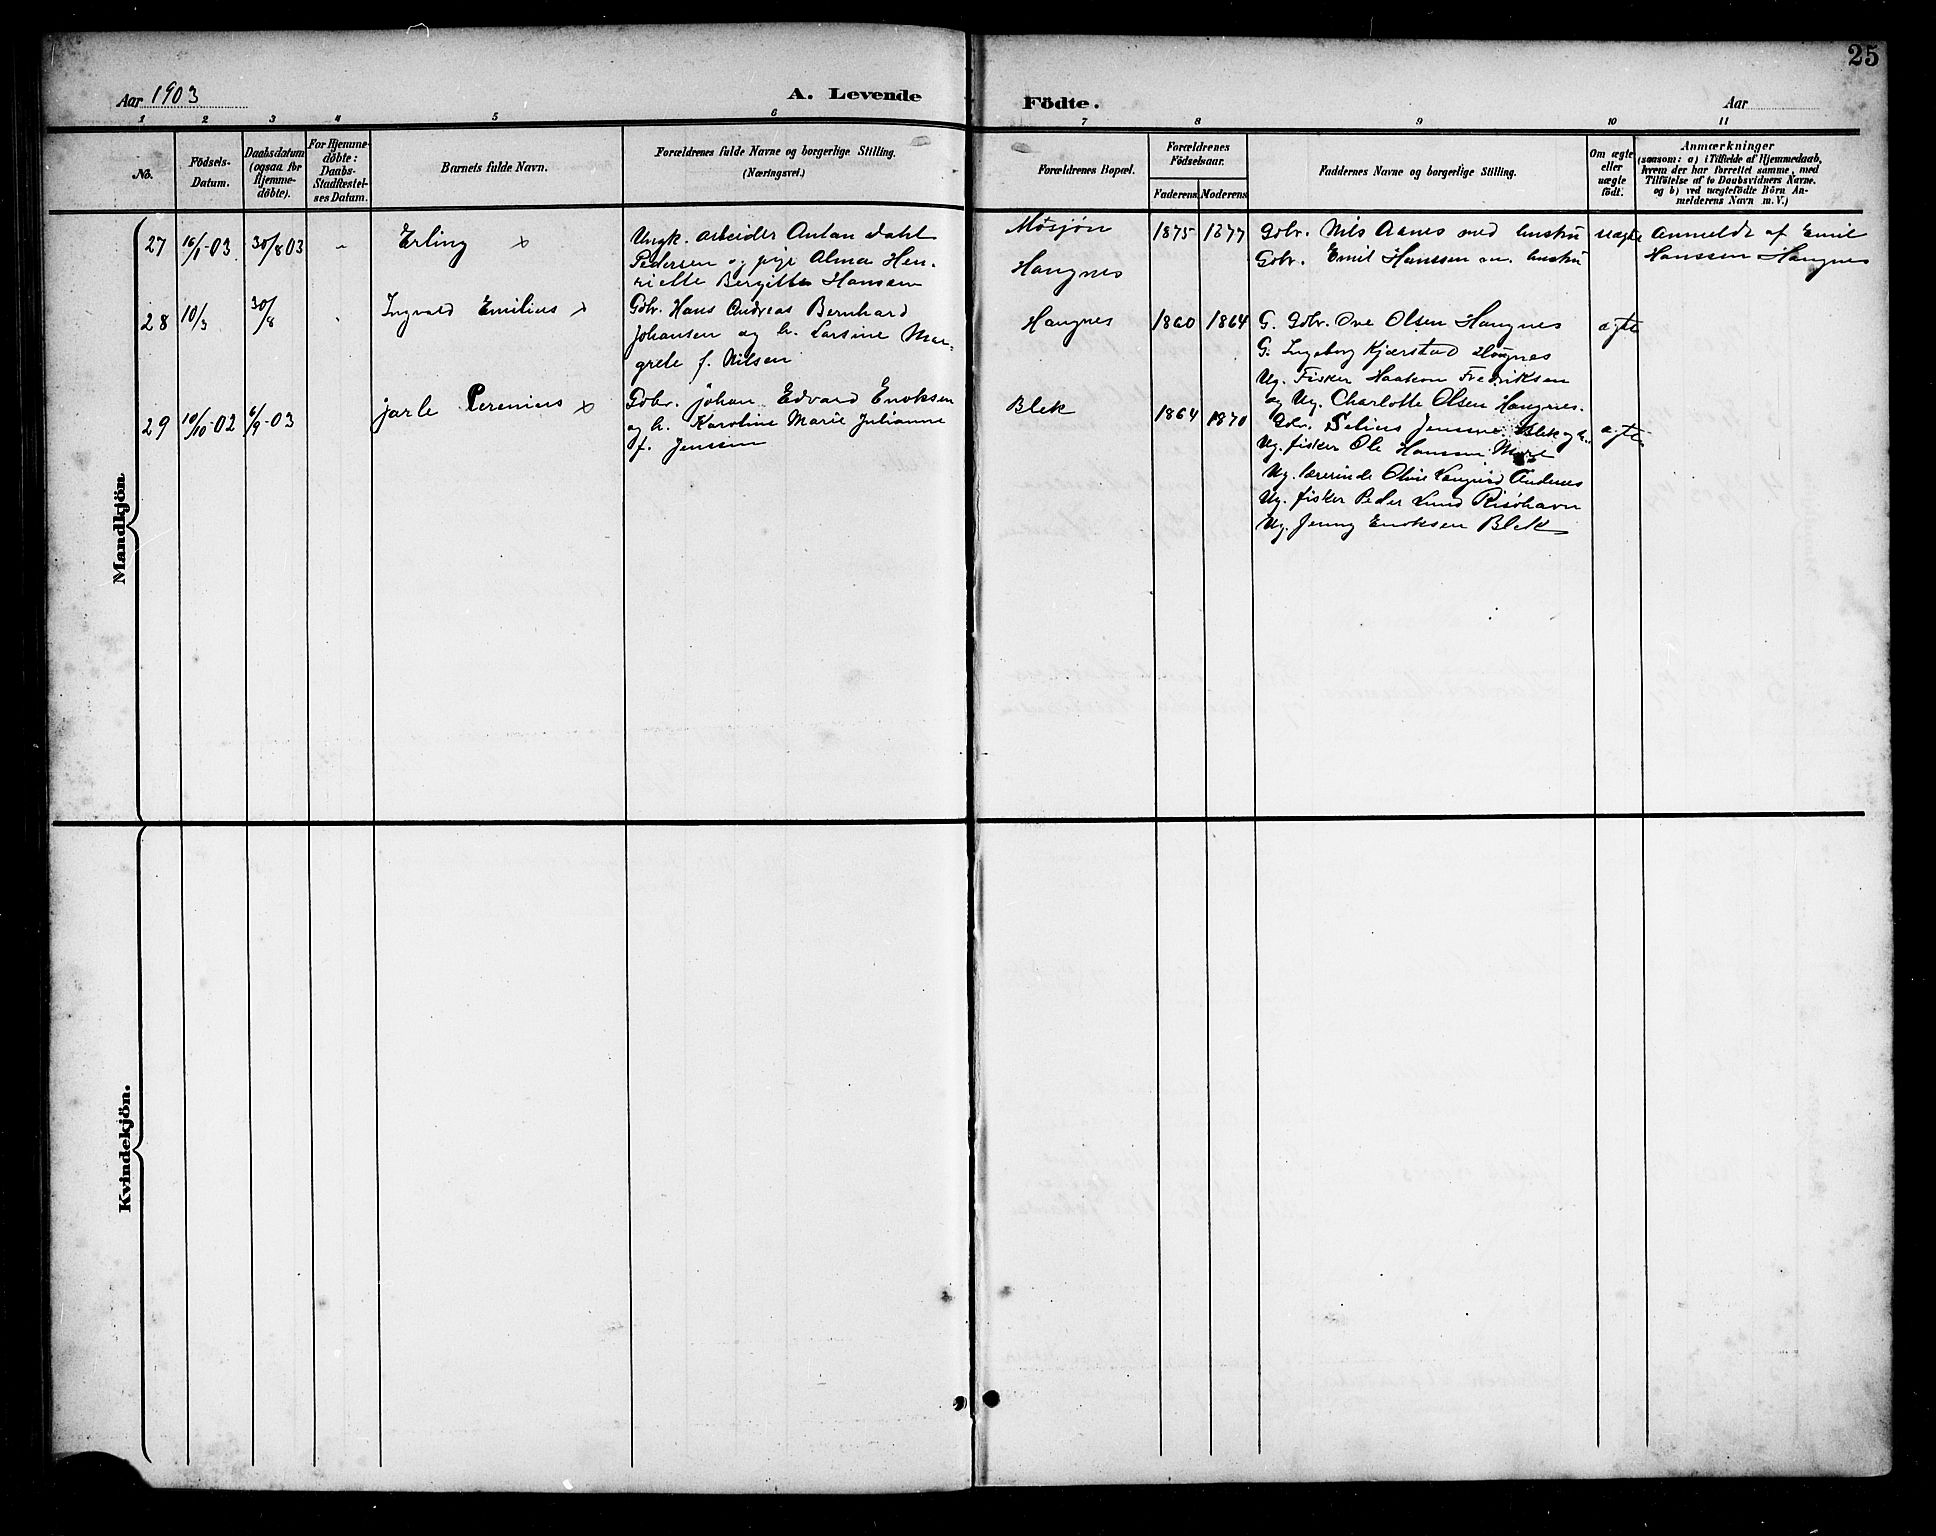 25
Aar 1903
A. Levende Födte.
Aar
1 2 3 4 5 6 7 8 9 10 11
No.
Födsels-Datum.
Daabsdatum (ogsaa for Hjemme-döbte).
For Hjemme-döbte: Daabs-Stadfæstel-ses Datum.
Barnets fulde Navn.
Forældrenes fulde Navne og borgerlige Stilling.
(Næringsvei.)
Forældrenes Bopæl.
Forældrenes Födselsaar.
Faderens. Moderens.
Faddernes Navne og borgerlige Stilling.
Om ægte eller uægte födt.
Anmærkninger
(saasom: a) i Tilfælde af Hjemmedaab,
hvem der har forrettet samme, med
Tilföielse af to Daabsvidners Navne,
og b) ved uægtefödte Börn An-
melderens Navn m. V.)
Mandkjön.
27 16/1-03 30/8 03 - Erling x
Ungk. arbeider Antan Dahl
Pedersen og pige Alma Hen-
riette Bergitte Hansen
Mosjøn
Haugnes
1875 1877
Gbr. Nils Aanes med hustru
Gbr. Emil Hanssen m. hustru
uægte
Anmeldt af Emil
Hanssen Haugnes
28 10/3 30/8 - Ingvald Emilius x
Gbr. Hans Andreas Bernhard
Johansen og h. Larsine Mar-
grete f. Nilsen
Haugnes
1860 1864
G. Gbr. Ove Olsen Haugnes
G. Ingeborg Kjærstad Haugnes
Ug. Fisker Haakon Fredriksen
og Ug. Charlotte Olsen Haugnes.
ægte
29 10/10-02 6/9-03 Jarle Perenius x
Gbr. Johan Edvard Enoksen
og h. Karoline Marie Julianne
f. Jenssen
Blek
1864 1870
Gbr. Selius Jenssen Blek og h.
Ug. fisker Ole Hanssen
Ug. lærerinde Oline Andenes
Ug. fisker Peder Lund Risøhavn
Ug. Jenny Enoksen Blek
ægte
Kvindekjön.